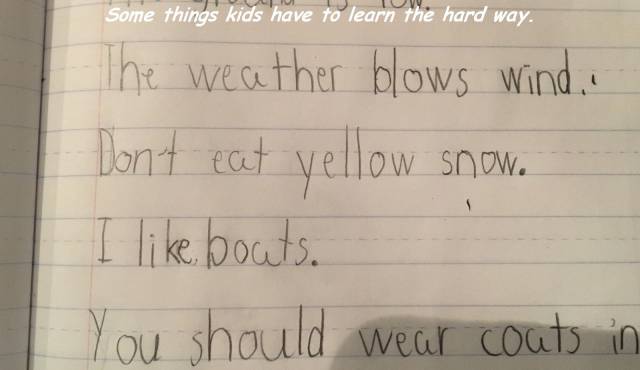 Some things kids have to learn the hard way.
The weather blows wind.
Don't eat yellow snow.
I like boats.
You should wear coats in